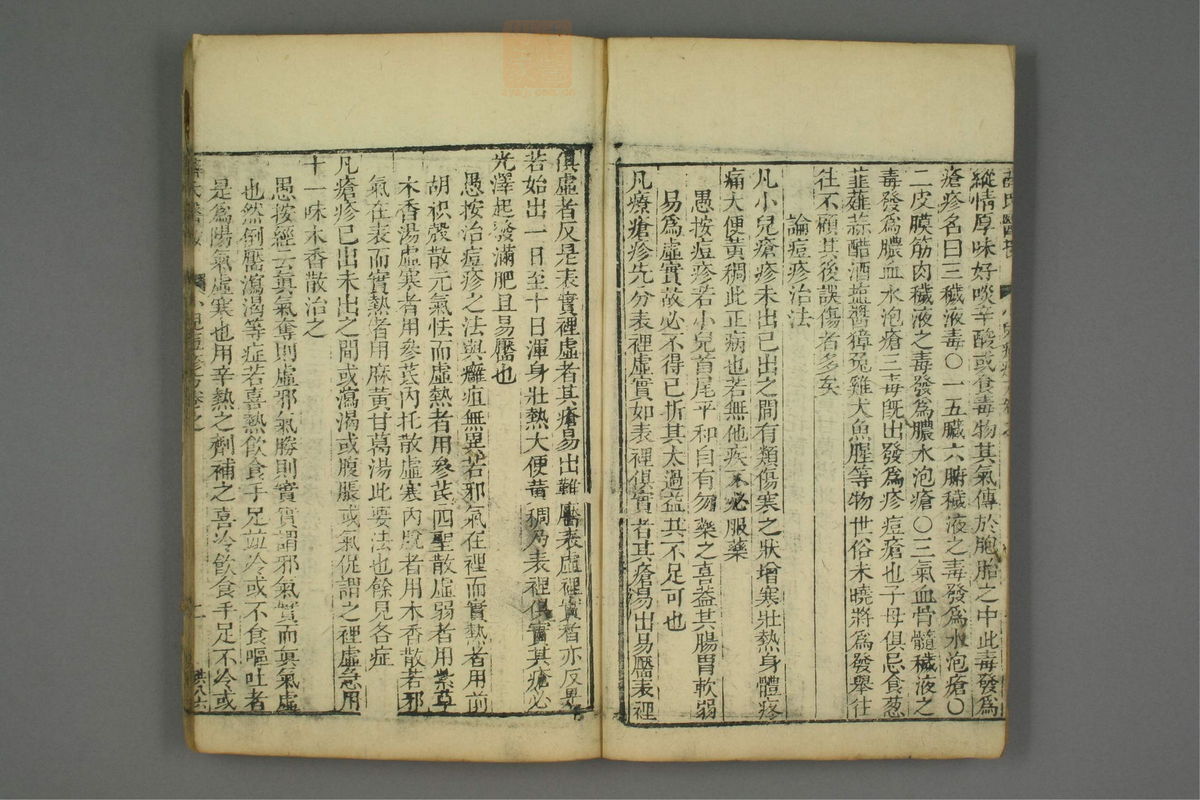 縱情厚味好啖辛酸或食毒物其氣傳於胞胎之中此毒發爲
瘡疹名曰三穢液毒〇一五臟六腑穢液之毒發爲水泡瘡〇
二皮膜筋肉穢液之毒發爲膿水泡瘡〇三氣血骨髓穢液之
毒發爲膿血水泡瘡三毒旣出發爲疹痘瘡也子母俱忌食葱
韮薤蒜醋酒塩醬獐兔雞犬魚腥等物世俗未曉將爲發舉往
往不顧其後誤傷者多矣
論痘疹治法
凡小兒瘡疹未出已出之間有類傷寒之狀增寒壯熱身體疼
痛大便黃稠此正病也若無他疾不必服藥
愚按痘疹若小兒首尾平和自有勿藥之喜葢其腸胃軟弱
易爲虛實故必不得已折其太過益其不足可也
凡療瘡疹先分表裡虛實如表裡俱實者其瘡湯出易靨表裡
俱虛者反是表實裡虛者其瘡易出難靨表虛裡實者亦反是
若始出一日至十日渾身壯熱大便黃稠乃表裡俱實其瘡必
光澤起發滿肥且易靨也
愚按治痘疹之法與癰疽無異若邪氣在裡而實熱者用前
胡枳殼散元氣怯而虛熱者用參芪四聖散虛弱者用紫草
木香湯虛寒者用參芪內托散虛寒內脫者用木香散若邪
氣在表而實熱者用麻黃甘葛湯此要法也餘見各症
凡瘡疹已出未出之間或瀉渴或腹脹或氣促謂之裡虛急用
十一味木香散治之
愚按經云眞氣奪則虛邪氣勝則實實謂邪氣實而眞氣虛
也然倒靨瀉渴等症若喜熱飲食手足並冷或不食嘔吐者
是爲陽氣虛寒也用辛熱之劑補之喜冷飲食手足不冷或